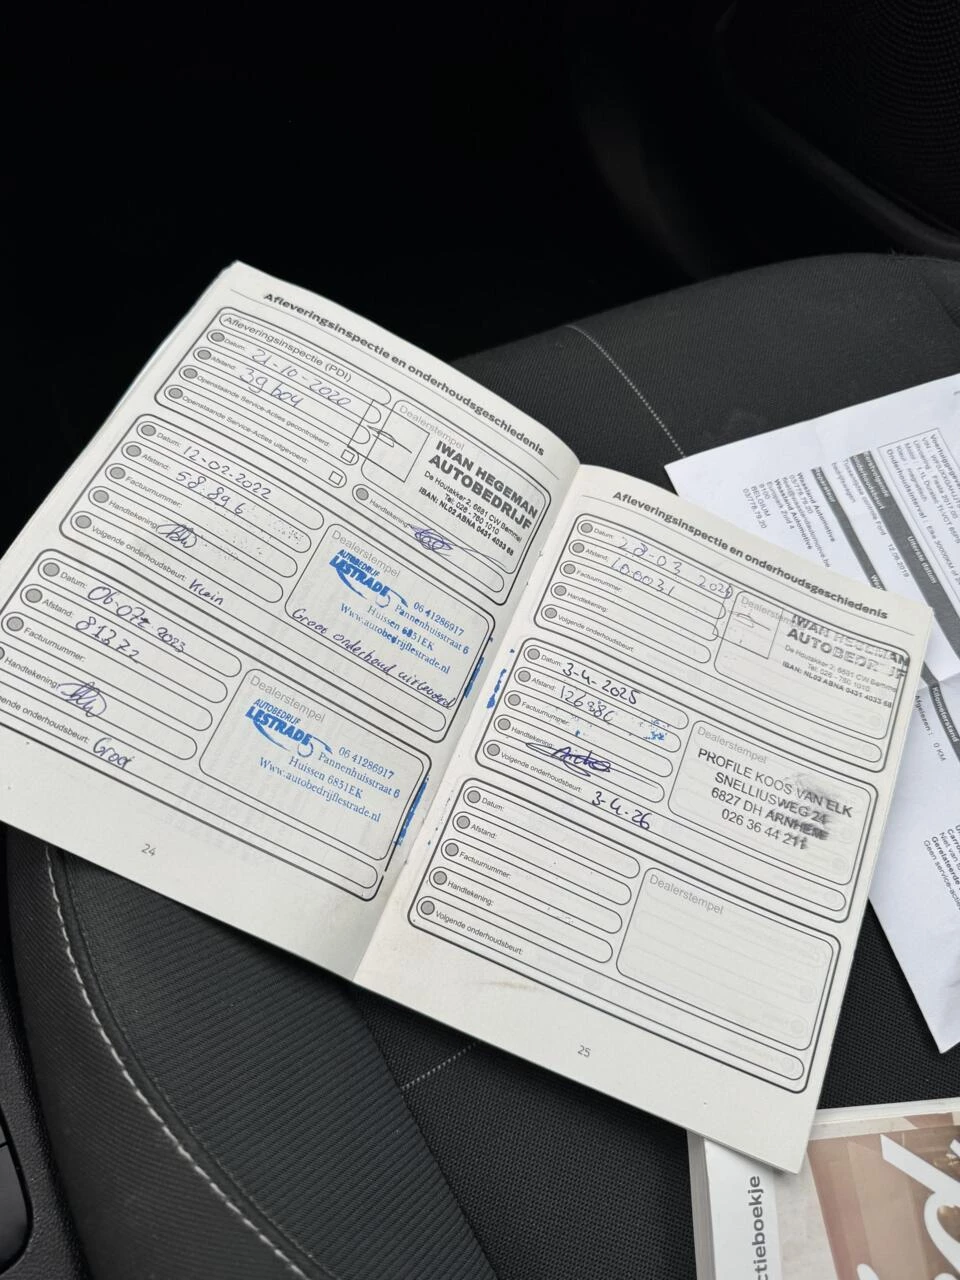 Afleveringsinspectie en onderhoudsgeschiedenis
Afleveringsinspectie (PDI)
Datum: 21-10-2020
Afstand: 39604
Openstaande Service-Acties gecontroleerd:
Openstaande Service-Acties uitgevoerd:
Dealerstempel
IWAN HEGEMAN
AUTOBEDRIJF
De Houtakker 2, 6681 CW Bemmel
Tel: 026 - 760 1010
IBAN: NL02 ABNA 0431 4033 68
Handtekening:
Datum: 12-02-2022
Afstand: 58.896
Factuurnummer:
Handtekening:
Volgende onderhoudsbeurt: Klein
Dealerstempel
AUTOBEDRIJF
LESTRADE
06 41286917
Pannenhuisstraat 6
Huissen 6851EK
Www.autobedrijflestrade.nl
Groot onderhoud uitgevoerd
Datum: 06-07-2023
Afstand: 81372
Factuurnummer:
Handtekening:
Volgende onderhoudsbeurt: Groot
Dealerstempel
AUTOBEDRIJF
LESTRADE
06 41286917
Pannenhuisstraat 6
Huissen 6851EK
Www.autobedrijflestrade.nl
24
Afleveringsinspectie en onderhoudsgeschiedenis
Datum: 28-03 2024
Afstand: 100031
Factuurnummer:
Handtekening:
Volgende onderhoudsbeurt:
Dealerstempel
IWAN HEGEMAN
AUTOBEDRIJF
De Houtakker 2, 6681 CW Bemmel
Tel: 026 - 760 1010
IBAN: NL02 ABNA 0431 4033 68
Datum: 3-4-2025
Afstand: 126386
Factuurnummer:
Handtekening:
Volgende onderhoudsbeurt: 3-4-26
Dealerstempel
PROFILE KOOS VAN ELK
SNELLIUSWEG 24
6827 DH ARNHEM
026 36 44 211
Datum:
Afstand:
Factuurnummer:
Handtekening:
Volgende onderhoudsbeurt:
Dealerstempel
25
Waasland Automotive
BELGIUM
037/778.79.20
12.09.2019
Uiterste datum
Kilometerstand
Afgelezen : 0 KM
ctieboekje